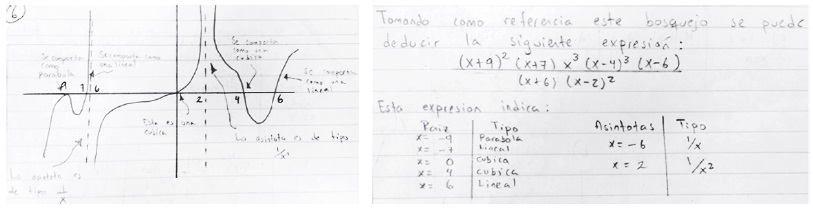 6
Se comporta
como
parabola
Se comporta como
una lineal
Se
comporta
como una
cubica
Se comporta
como una
lineal
9 7 6
2 4 6
Esta es una
cubica
La asintota es de tipo
1/x²
La asintota es
de tipo 1/x
Tomando como referencia este bosquejo se puede
deducir la siguiente expresión:
(x+9)² (x+7) x³ (x-4)³ (x-6)
(x+6) (x-2)²
Esta expresion indica:
Raiz Tipo
x= -9 Parabola
x= -7 Lineal
x= 0 cubica
x= 4 cubica
x= 6 Lineal
Asintotas Tipo
x= -6 1/x
x= 2 1/x²